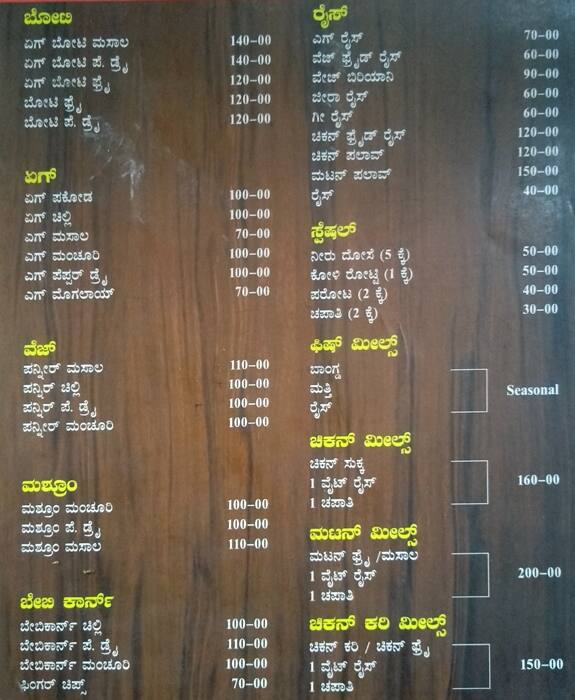 ಬೋಟಿ
ಏಗ್ ಬೋಟಿ ಮಸಾಲ 140-00
ಏಗ್ ಬೋಟಿ ಪೆ. ಡ್ರೈ 140-00
ಏಗ್ ಬೋಟಿ ಫ್ರೈ 120-00
ಬೋಟಿ ಫ್ರೈ 120-00
ಬೋಟಿ ಪೆ. ಡ್ರೈ 120-00
ಏಗ್
ಏಗ್ ಪಕೋಡ 100-00
ಏಗ್ ಚಿಲ್ಲಿ 100-00
ಎಗ್ ಮಸಾಲ 70-00
ಎಗ್ ಮಂಚೂರಿ 100-00
ಎಗ್ ಪೆಪ್ಪರ್ ಡ್ರೈ 100-00
ಎಗ್ ಮೊಗಲಾಯ್ 70-00
ವೆಜ್
ಪನ್ನೀರ್ ಮಸಾಲ 110-00
ಪನ್ನಿರ್ ಚಿಲ್ಲಿ 100-00
ಪನ್ನಿರ್ ಪೆ. ಡ್ರೈ 100-00
ಪನ್ನೀರ್ ಮಂಚೂರಿ 100-00
ಮಶ್ರೂಂ
ಮಶ್ರೂಂ ಮಂಚೂರಿ 100-00
ಮಶ್ರೂಂ ಪೆ. ಡ್ರೈ 100-00
ಮಶ್ರೂಂ ಮಸಾಲ 110-00
ಬೇಬಿ ಕಾರ್ನ್
ಬೇಬಿಕಾರ್ನ್ ಚಿಲ್ಲಿ 100-00
ಬೇಬಿಕಾರ್ನ್ ಪೆ. ಡ್ರೈ 110-00
ಬೇಬಿಕಾರ್ನ್ ಮಂಚೂರಿ 100-00
ಫಿಂಗರ್ ಚಿಪ್ಸ್ 70-00
ರೈಸ್
ಎಗ್ ರೈಸ್ 70-00
ವೆಜ್ ಫ್ರೈಡ್ ರೈಸ್ 60-00
ವೇಜ್ ಬಿರಿಯಾನಿ 90-00
ಜೀರಾ ರೈಸ್ 60-00
ಗೀ ರೈಸ್ 60-00
ಚಿಕನ್ ಫ್ರೈಡ್ ರೈಸ್ 120-00
ಚಿಕನ್ ಪಲಾವ್ 120-00
ಮಟನ್ ಪಲಾವ್ 150-00
ರೈಸ್ 40-00
ಸ್ಪೆಷಲ್
ನೀರು ದೋಸೆ (5 ಕ್ಕೆ) 50-00
ಕೋಳಿ ರೋಟ್ಟಿ (1 ಕ್ಕೆ) 50-00
ಪರೋಟ (2 ಕ್ಕೆ) 40-00
ಚಪಾತಿ (2 ಕ್ಕೆ) 30-00
ಫಿಷ್ ಮೀಲ್ಸ್
ಬಾಂಗ್ಡ
ಮತ್ತಿ Seasonal
ರೈಸ್
ಚಿಕನ್ ಮೀಲ್ಸ್
ಚಿಕನ್ ಸುಕ್ಕ
1 ವೈಟ್ ರೈಸ್ 160-00
1 ಚಪಾತಿ
ಮಟನ್ ಮೀಲ್ಸ್
ಮಟನ್ ಫ್ರೈ /ಮಸಾಲ
1 ವೈಟ್ ರೈಸ್ 200-00
1 ಚಪಾತಿ
ಚಿಕನ್ ಕರಿ ಮೀಲ್ಸ್
ಚಿಕನ್ ಕರಿ / ಚಿಕನ್ ಫ್ರೈ
1 ವೈಟ್ ರೈಸ್ 150-00
1 ಚಪಾತಿ